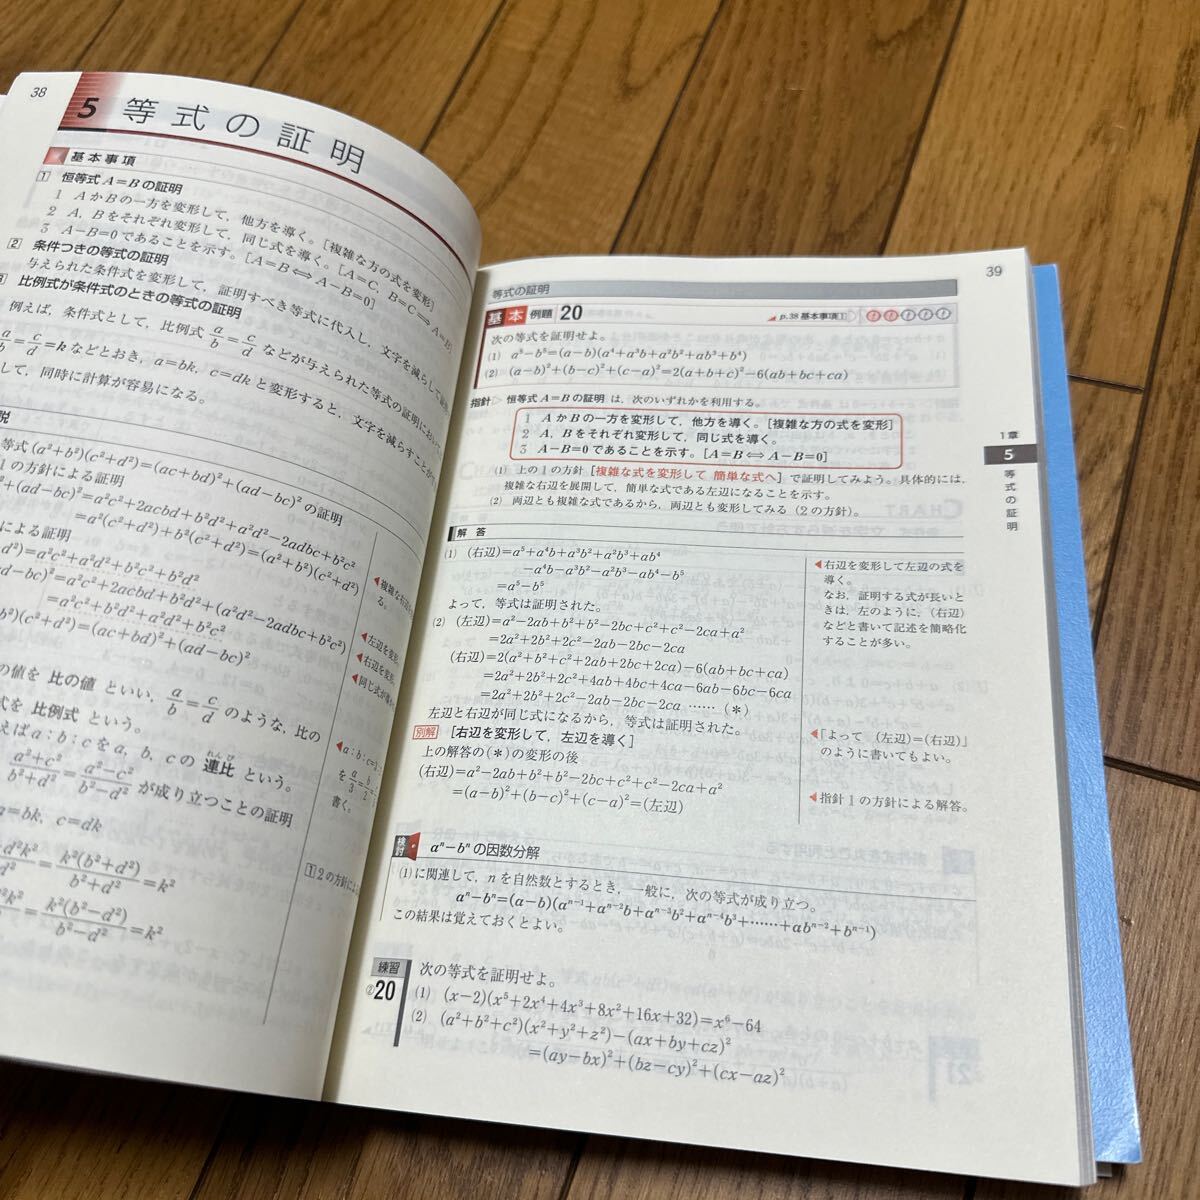 38
5 等式の証明
基本事項
1 恒等式 A=B の証明
1 A か B の一方を変形して,他方を導く。[複雑な方の式を変形]
2 A, B をそれぞれ変形して,同じ式を導く。[A=C, B=C ⟹ A=B]
3 A−B=0 であることを示す。[A=B ⟺ A−B=0]
2 条件つきの等式の証明
与えられた条件式を変形して,証明すべき等式に代入し,文字を減らして
3 比例式が条件式のときの等式の証明
例えば,条件式として,比例式 a/b = c/d などが与えられた等式の証明において
a/b = c/d = k などとおき,a=bk, c=dk と変形すると,文字を減らすことが
して,同時に計算が容易になる。
説
等式 (a²+b²)(c²+d²)=(ac+bd)²+(ad−bc)² の証明
1の方針による証明
²+(ad−bc)²=a²c²+2acbd+b²d²+a²d²−2adbc+b²c²
=a²(c²+d²)+b²(c²+d²)=(a²+b²)(c²+d²)
による証明
d²)=a²c²+a²d²+b²c²+b²d²
−bc)²=a²c²+2acbd+b²d²+(a²d²−2adbc+b²c²)
=a²c²+b²d²+a²d²+b²c²
b²)(c²+d²)=(ac+bd)²+(ad−bc)²
◀複雑な右辺を
る。
◀左辺を変形。
◀右辺を変形。
◀同じ式が導か
の値を 比の値 といい,a/b = c/d のような,比の
式を 比例式 という。
えば a:b:c を a, b, c の 連比 という。
れんぴ
a²+c²/b²+d² = a²−c²/b²−d² が成り立つことの証明
a=bk, c=dk
+d²k²/ = k²(b²+d²)/b²+d² = k²
k²/ = k²(b²−d²)/b²−d² = k²
◀a:b:c=
を a/3 = b/2 =
書く。
1 2 の方針によ
39
等式の証明
基本 例題 20
p.38 基本事項 1
次の等式を証明せよ。
(1) a⁵−b⁵=(a−b)(a⁴+a³b+a²b²+ab³+b⁴)
(2) (a−b)²+(b−c)²+(c−a)²=2(a+b+c)²−6(ab+bc+ca)
指針 ▷ 恒等式 A=B の証明 は,次のいずれかを利用する。
1 A か B の一方を変形して,他方を導く。[複雑な方の式を変形]
2 A, B をそれぞれ変形して,同じ式を導く。
3 A−B=0 であることを示す。[A=B ⟺ A−B=0]
(1) 上の 1 の方針 [複雑な式を変形して 簡単な式へ] で証明してみよう。具体的には,
複雑な右辺を展開して,簡単な式である左辺になることを示す。
(2) 両辺とも複雑な式であるから,両辺とも変形してみる (2 の方針)。
解答
(1) (右辺)=a⁵+a⁴b+a³b²+a²b³+ab⁴
−a⁴b−a³b²−a²b³−ab⁴−b⁵
=a⁵−b⁵
よって,等式は証明された。
(2) (左辺)=a²−2ab+b²+b²−2bc+c²+c²−2ca+a²
=2a²+2b²+2c²−2ab−2bc−2ca
(右辺)=2(a²+b²+c²+2ab+2bc+2ca)−6(ab+bc+ca)
=2a²+2b²+2c²+4ab+4bc+4ca−6ab−6bc−6ca
=2a²+2b²+2c²−2ab−2bc−2ca ……(*)
左辺と右辺が同じ式になるから,等式は証明された。
別解 [右辺を変形して,左辺を導く]
上の解答の(*)の変形の後
(右辺)=a²−2ab+b²+b²−2bc+c²+c²−2ca+a²
=(a−b)²+(b−c)²+(c−a)²=(左辺)
◀右辺を変形して左辺の式を
導く。
なお,証明する式が長いと
きは,左のように,(右辺)
などと書いて記述を簡略化
することが多い。
◀「よって (左辺)=(右辺)」
のように書いてもよい。
◀指針 1 の方針による解答。
検討 aⁿ−bⁿ の因数分解
(1)に関連して,n を自然数とするとき,一般に,次の等式が成り立つ。
aⁿ−bⁿ=(a−b)(aⁿ⁻¹+aⁿ⁻²b+aⁿ⁻³b²+aⁿ⁻⁴b³+……+abⁿ⁻²+bⁿ⁻¹)
この結果は覚えておくとよい。
練習 次の等式を証明せよ。
②20 (1) (x−2)(x⁵+2x⁴+4x³+8x²+16x+32)=x⁶−64
(2) (a²+b²+c²)(x²+y²+z²)−(ax+by+cz)²
=(ay−bx)²+(bz−cy)²+(cx−az)²
1章
5
等式の証明